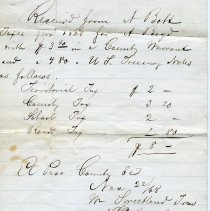 Received from A Bott
Taxes for 1868 for A Boyd
with $ 3 20 in a County Warrant
and $ 4 80 U. S. Treasury Notes
as follows.
Territorial Tax $ 2 —
County Tax 3 20
School Tax 2 —
Road Tax 1 80
$ 8 —
El Paso County
Nov 22/68
Wm Sweetland Treas